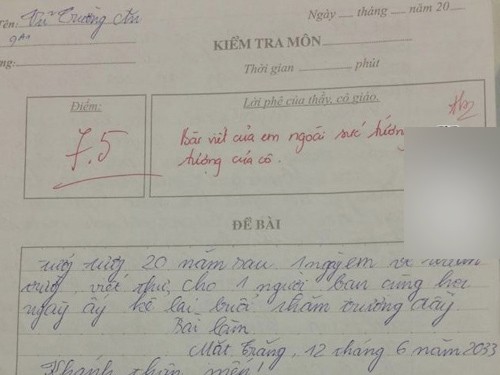 Tên: Vũ Trường An
Ngày ___ tháng ___ năm 20___
9A1
KIỂM TRA MÔN
Thời gian ___ phút
Điểm:
Lời phê của thầy, cô giáo.
7.5
Bài viết của em ngoài sức tưởng
tượng của cô.
ĐỀ BÀI
20 năm sau 1 ngày em về
trường viết thư cho 1 người bạn cùng học
ngày ấy kể lại buổi thăm trường đầy
Bài làm
Mặt Trăng, 12 tháng 6 năm 2033
Khánh thân mến!